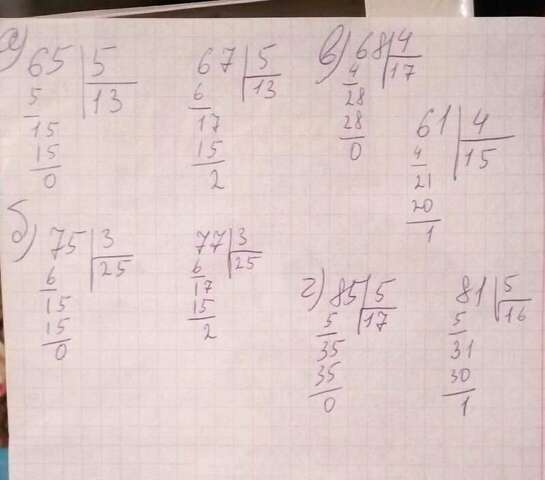 а) 65 | 5
5 | 13
15
15
0
67 | 5
6 | 13
17
15
2
в) 68 | 4
4 | 17
28
28
0
61 | 4
4 | 15
21
20
1
б) 75 | 3
6 | 25
15
15
0
77 | 3
6 | 25
17
15
2
г) 85 | 5
5 | 17
35
35
0
81 | 5
5 | 16
31
30
1